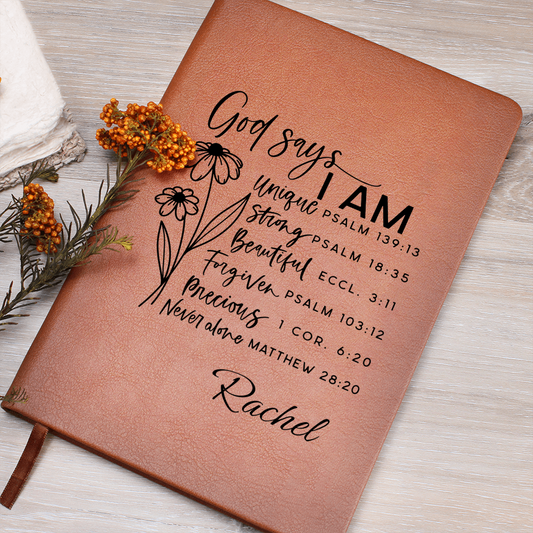 God says
I AM
Unique PSALM 139:13
Strong PSALM 18:35
Beautiful ECCL. 3:11
Forgiven PSALM 103:12
Precious 1 COR. 6:20
Never alone MATTHEW 28:20
Rachel